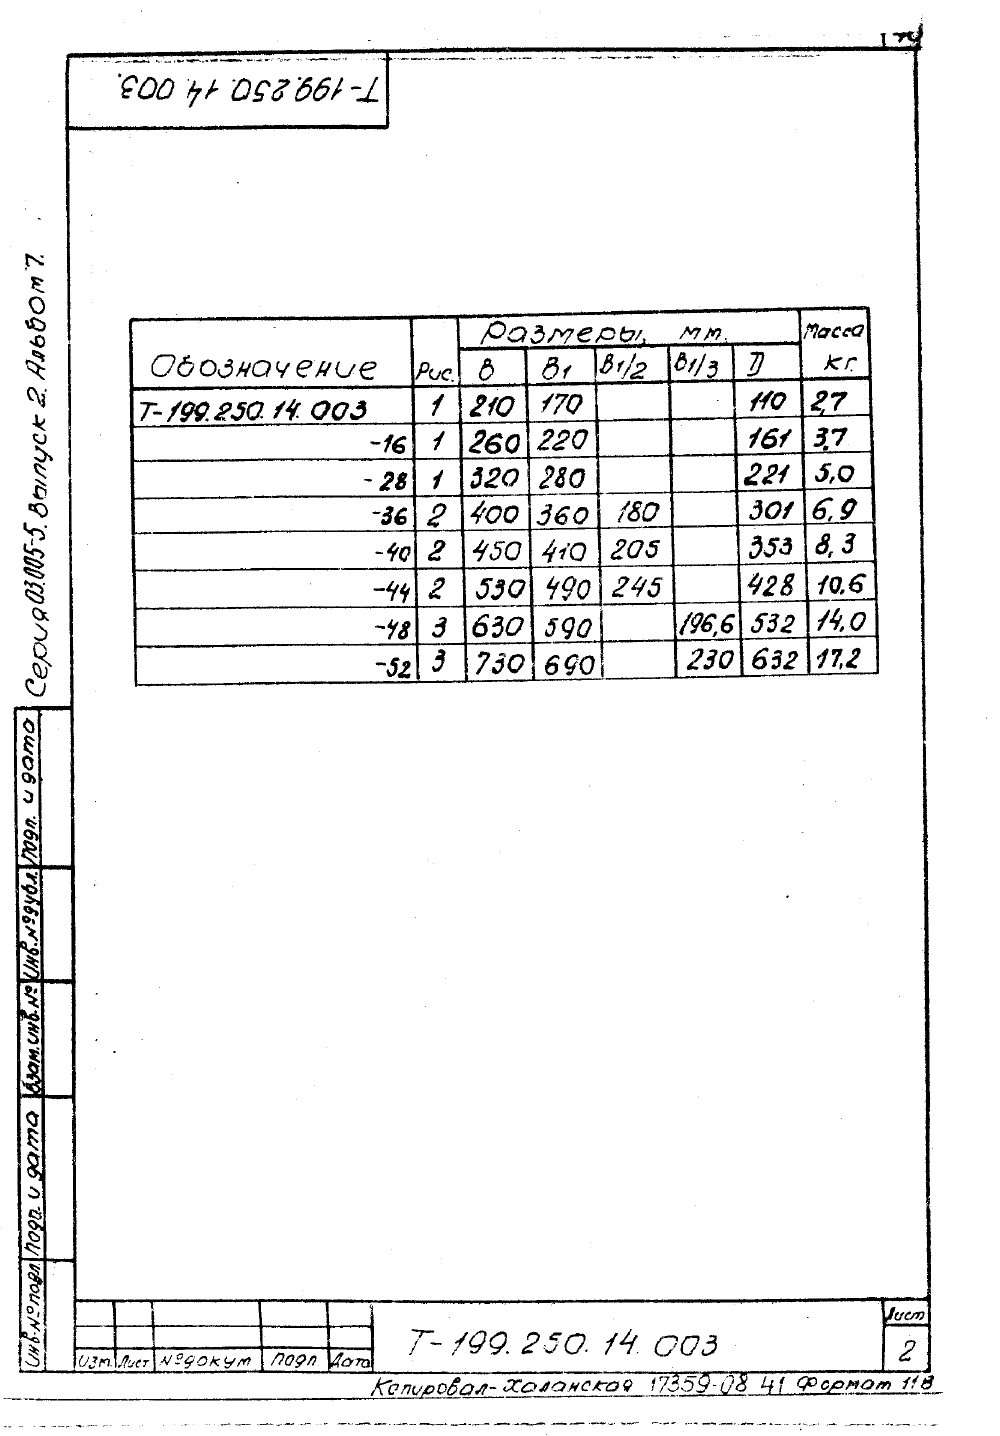 Т-199.250.14 003.
Серия 03.005-5. Выпуск 2. Альбом 7.
Обозначение Рис. Размеры, мм. Масса кг.
В В1 В1/2 В1/3 D
Т-199.250.14.003 1 210 170 110 2,7
-16 1 260 220 161 3,7
-28 1 320 280 221 5,0
-36 2 400 360 180 301 6,9
-40 2 450 410 205 353 8,3
-44 2 530 490 245 428 10.6
-48 3 630 590 196,6 532 14,0
-52 3 730 690 230 632 17.2
Подп. и дата
Инв.№дубл.
Взам.инв.№
Подп. и дата
Инв.№подл
Изм Лист №докум Подп Дата
Т-199.250.14.003
Лист
2
Копировал-Халанская 17359-08 41 Формат 11В